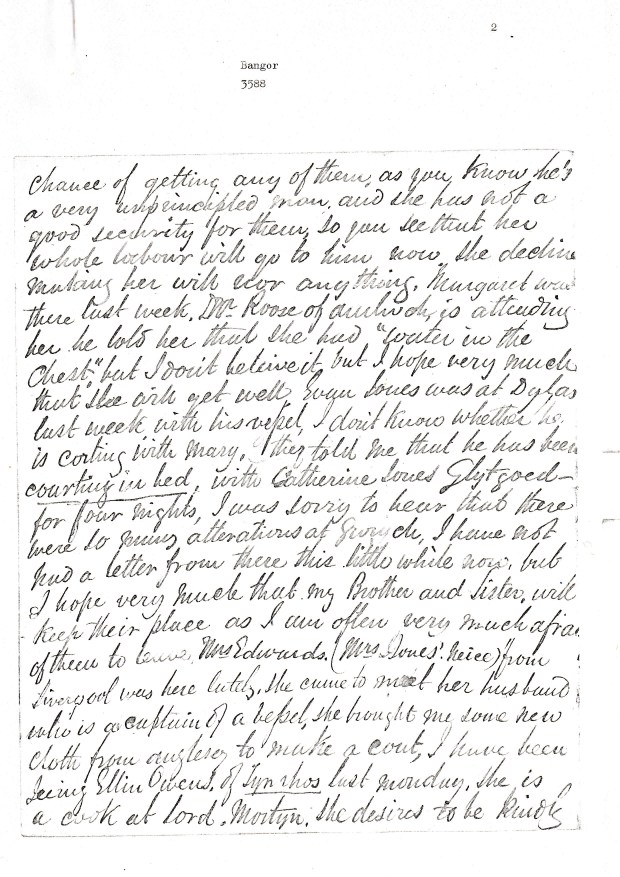 2
Bangor
3588
chance of getting any of them, as you know he's
a very unprincipled man, and she has not a
good security for them, so you see that her
whole labour will go to him now, she decline
making her will nor any thing. Margaret was
there last week. Dr. Roose of amlwch, is attending
her he told her that she had "water in the
Chest," but I don't beleive it, but I hope very much
that she will get well, Evan Jones was at Dylas
last week with his vessel, I don't know whether he
is corting with Mary, they told me that he has been
courting in bed, with Catherine Jones Glytgoed-
for four nights, I was sorry to hear that there
were so many alterations at Gwrych, I have not
had a letter from there this little while now, but
I hope very much that my Brother and Sister, will
keep their place as I am often very much afrai
of them to leave, Mrs Edwards. (Mrs. Jones'. Neice) from
Liverpool was here lately, she came to meet her husband
who is a captain of a vessel, she brought me some new
cloth from anglesey to make a coat, I have been
seeing Ellin Owens, of Tyn rhos last monday, she is
a cook at Lord. Mostyn, she desires to be kindly